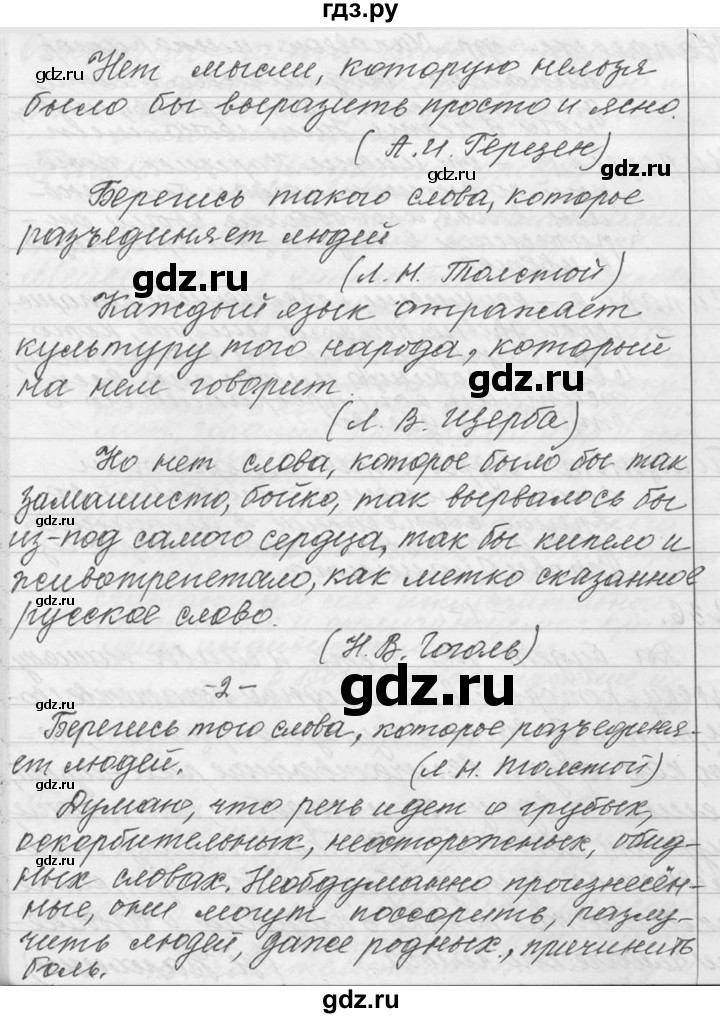 гдз.ру
Нет мысли, которую нельзя
было бы выразить просто и ясно.
(А.И. Герцен)
Берегись такого слова, которое
разъединяет людей
(Л.Н. Толстой)
Каждый язык отражает
культуру того народа, который
на нем говорит.
(Л.В. Щерба)
Но нет слова, которое было бы так
замашисто, бойко, так вырвалось бы
из-под самого сердца, так бы кипело и
животрепетало, как метко сказанное
русское слово.
(Н.В. Гоголь)
-2-
Берегись того слова, которое разъединя-
ет людей. (Л.Н. Толстой)
Думаю, что речь идет о грубых,
оскорбительных, неосторожных, обид-
ных словах. Необдуманно произнесён-
ные, они могут поссорить, разлу-
чить людей, даже родных, причинить
боль.
gdz.ru
gdz.ru
gdz.ru
gdz.ru
gdz.ru
gdz.ru
gdz.ru
gdz.ru
gdz.ru
gdz.ru
gdz.ru
gdz.ru
gdz.ru
gdz.ru